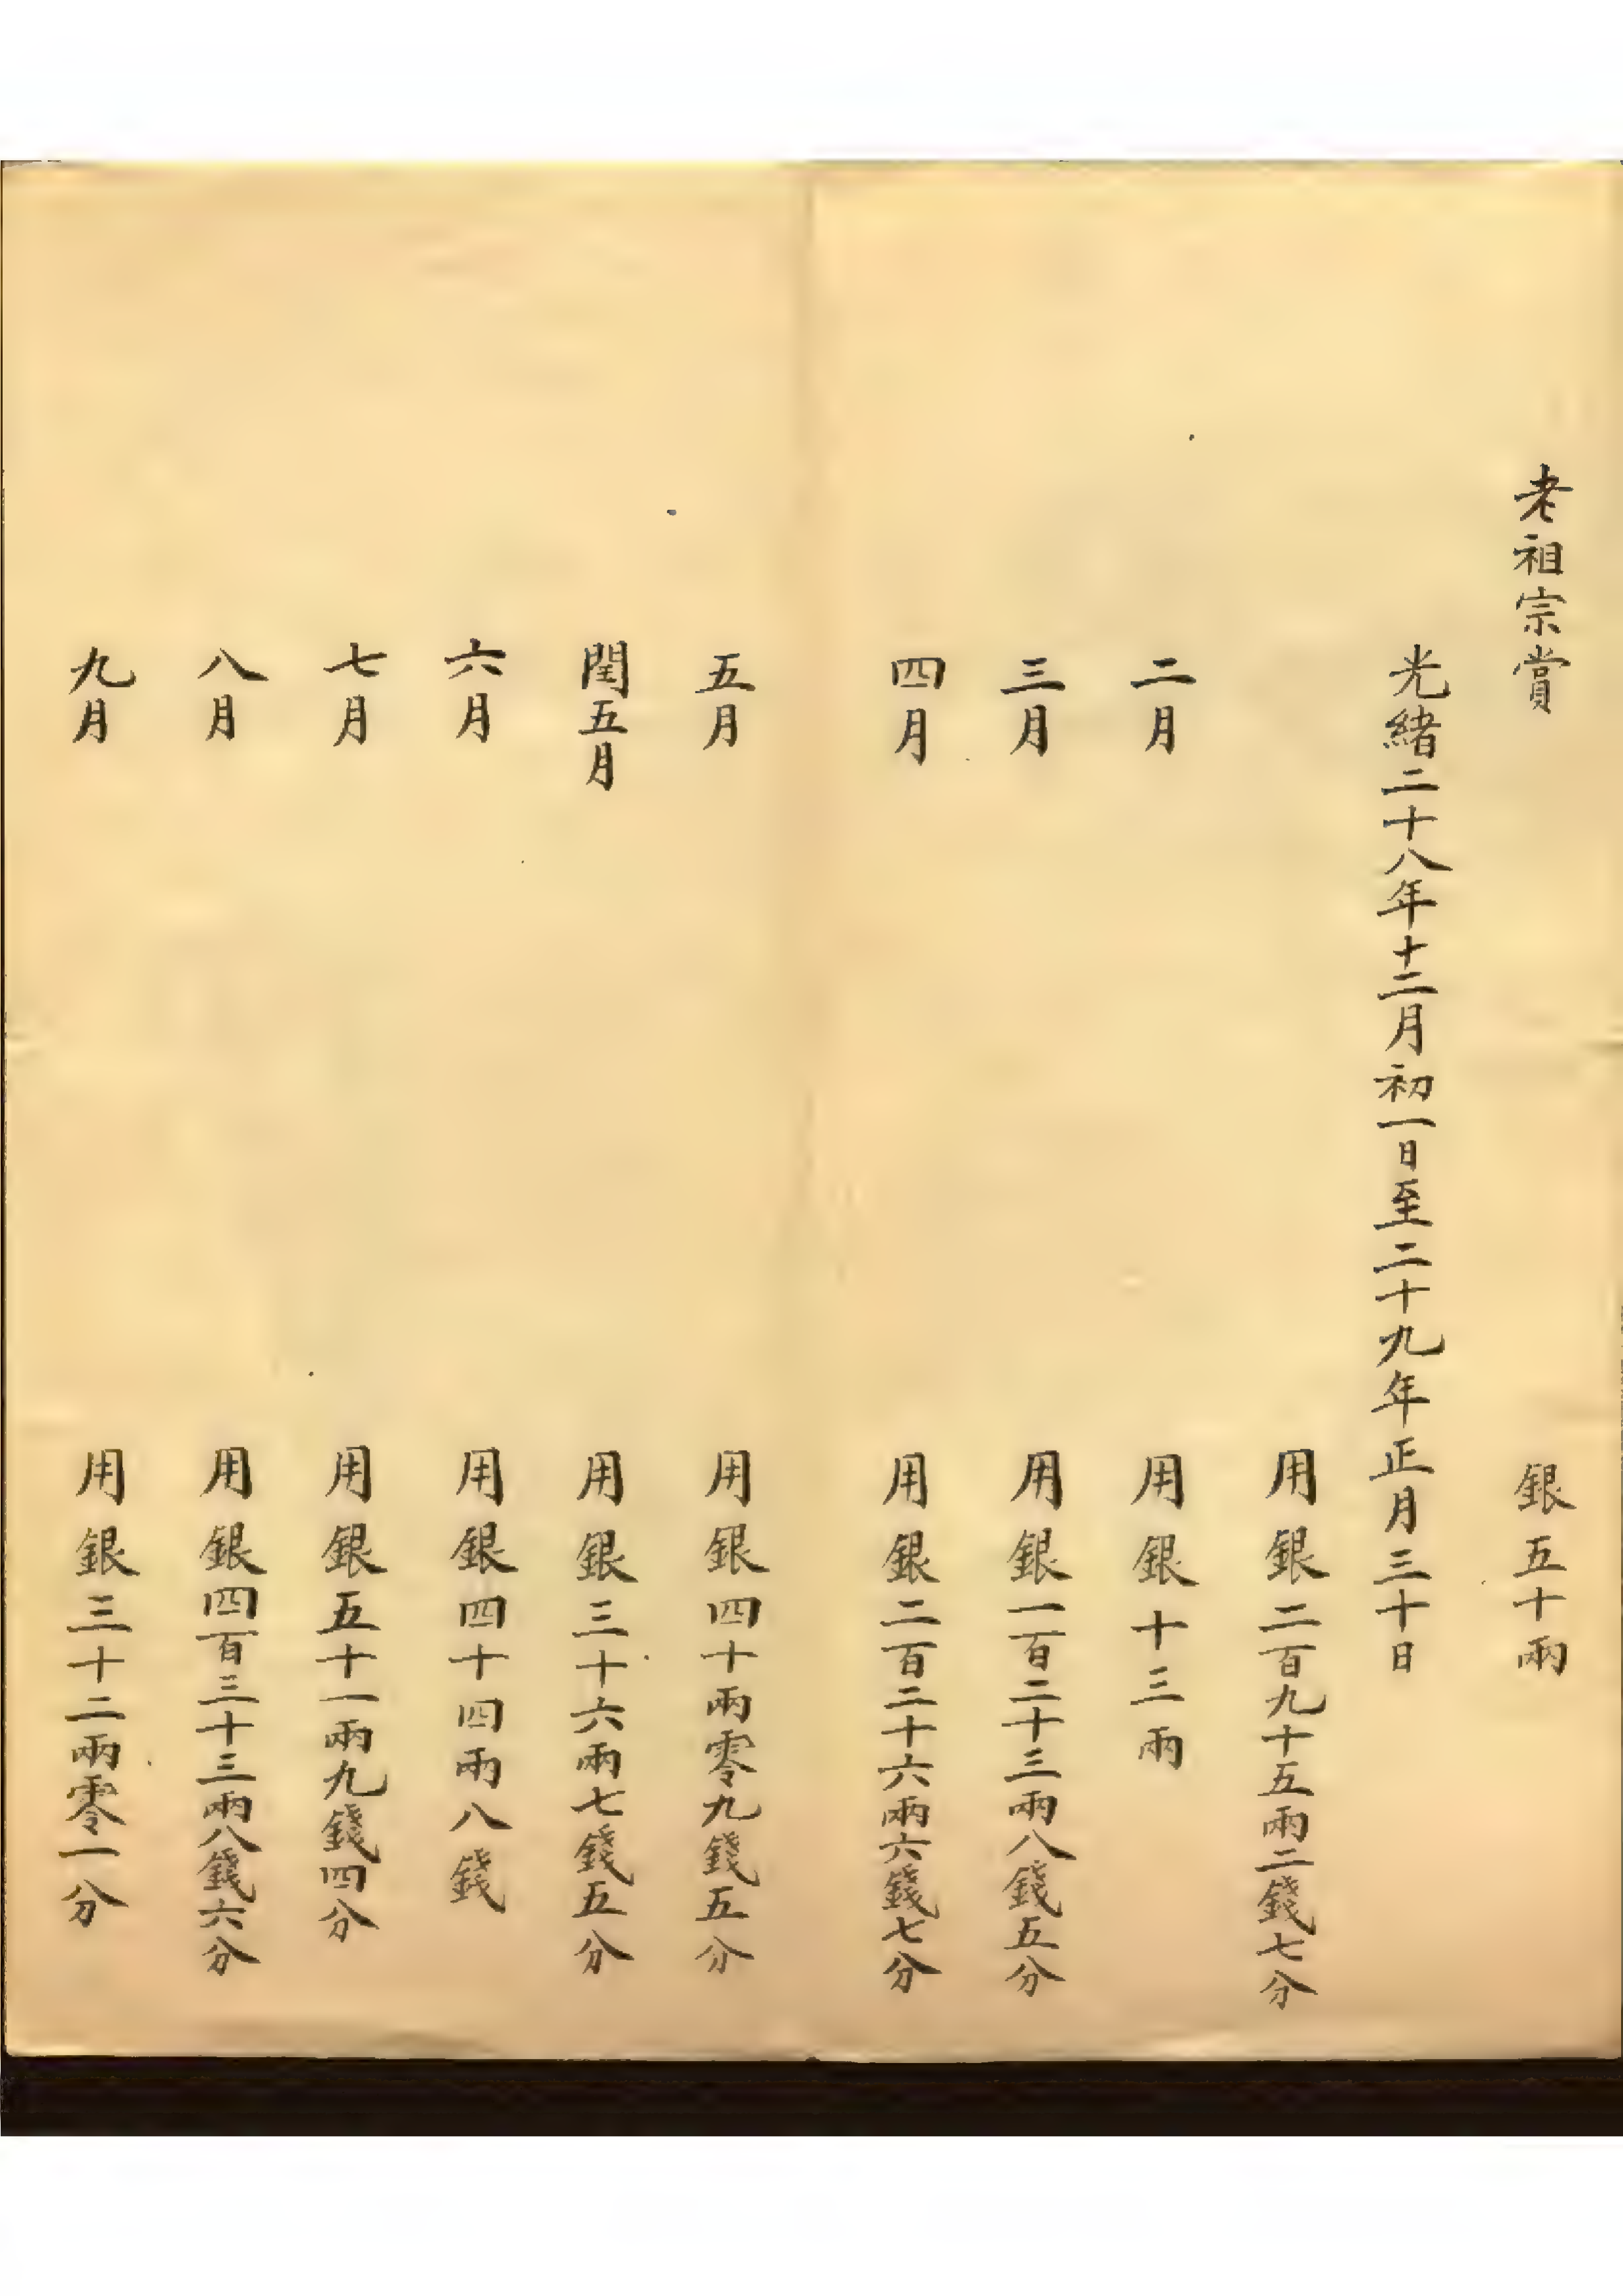 老祖宗賞 銀五十兩
光緒二十八年十二月初一日至二十九年正月三十日
用銀二百九十五兩二錢七分
二月 用銀十三兩
三月 用銀一百二十三兩八錢五分
四月 用銀二百二十六兩六錢七分
五月 用銀四十兩零九錢五分
閏五月 用銀三十六兩七錢五分
六月 用銀四十四兩八錢
七月 用銀五十一兩九錢四分
八月 用銀四百三十三兩八錢六分
九月 用銀三十二兩零一分